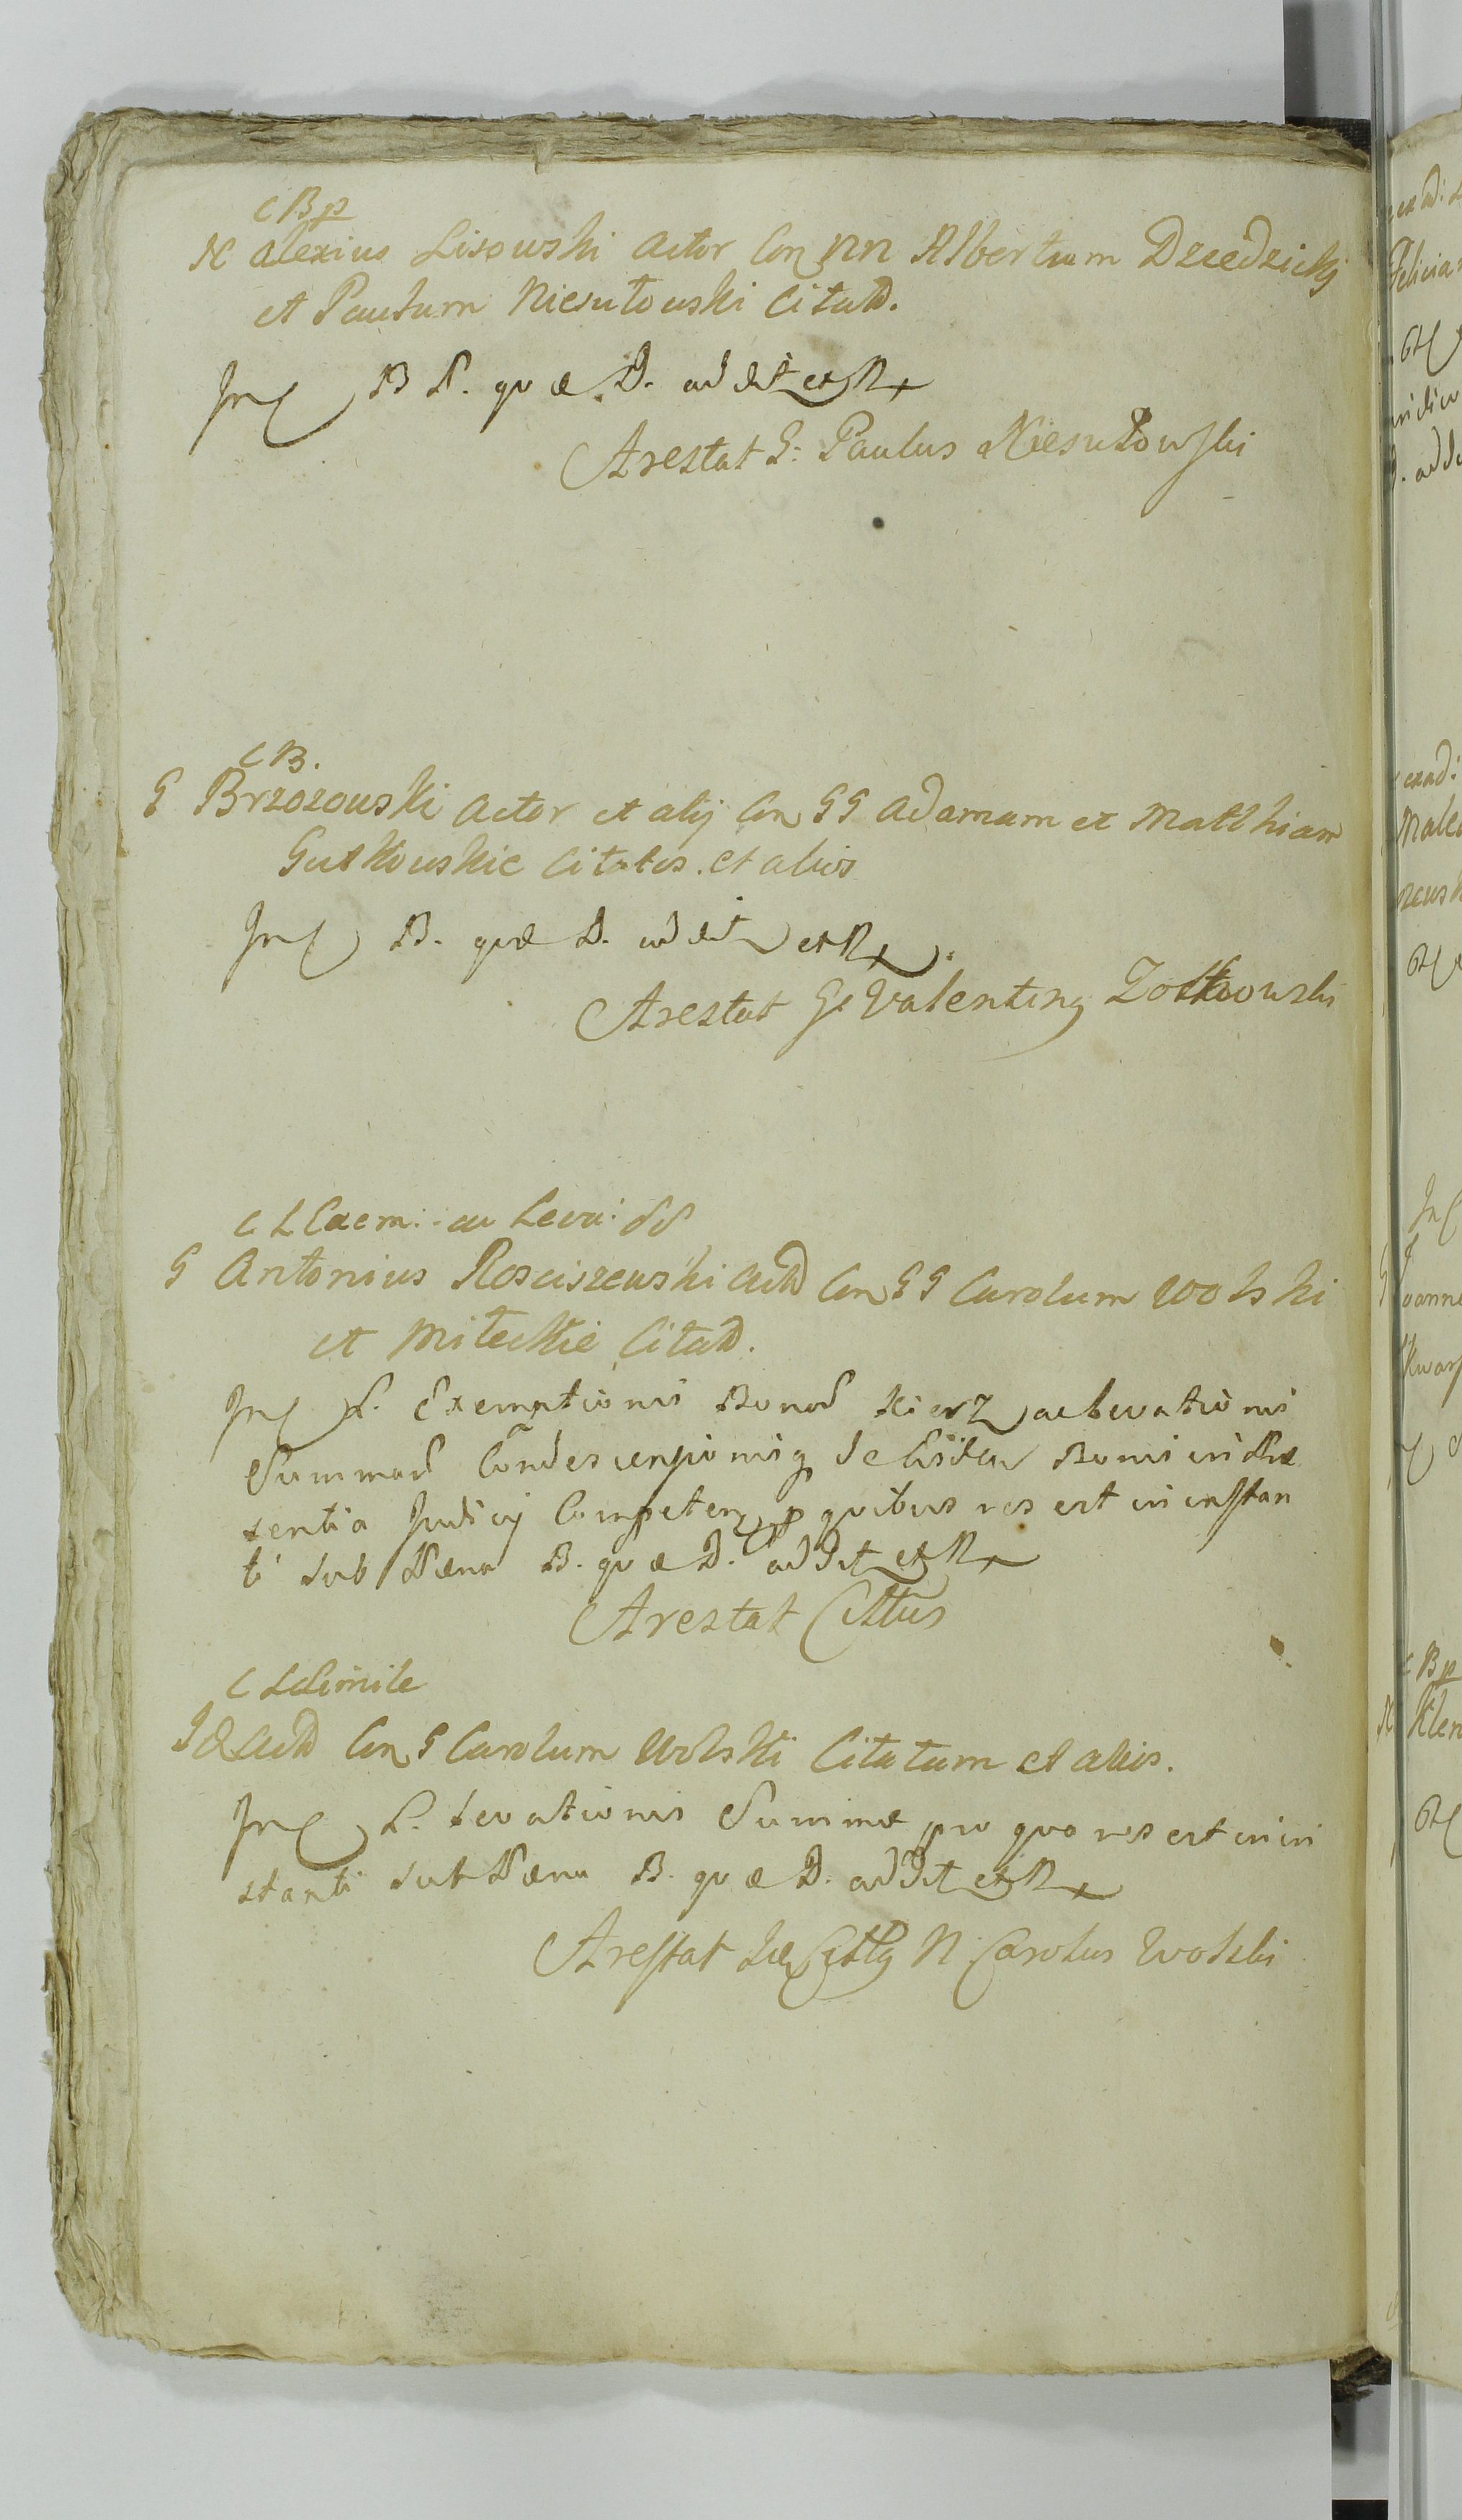 C B p
N Alexius Lisowski Actor Con NN Albertum Dziedzicki
et Paulum Niesułowski Citatt.
In C B P. quæ D. addit et Rx
Arestat G: Paulus Niesułowski
C B.
G Brzozowski Actor et alij Con GG Adamum et Matthiam
Gutkowskie Citatos. et alios
In C B. quæ D. addit et Rx.
Arestat G. Valenting Zołkowski
C L Exem: ac Leva:
G Antonius Rosciszewski Con GG Carolum Wolski
et Miteckie Citatt.
In C L. Exemptionis Bonor Kierz ac Levationis
Summar Condescensionisq de iisdem Bonis in Præ
sentia Judicij Competen p quibus res est in instan
ti sub Pæna B. quæ D. addit et Rx
Arestat Cittus
C L Simile
Id Con G Carolum Wolski Citatum et alios.
In C L. Levationis Summæ pro qua res est in in
stanti sub Pæna B. quæ D. addit et Rx
Arestat N Carolus Wolski